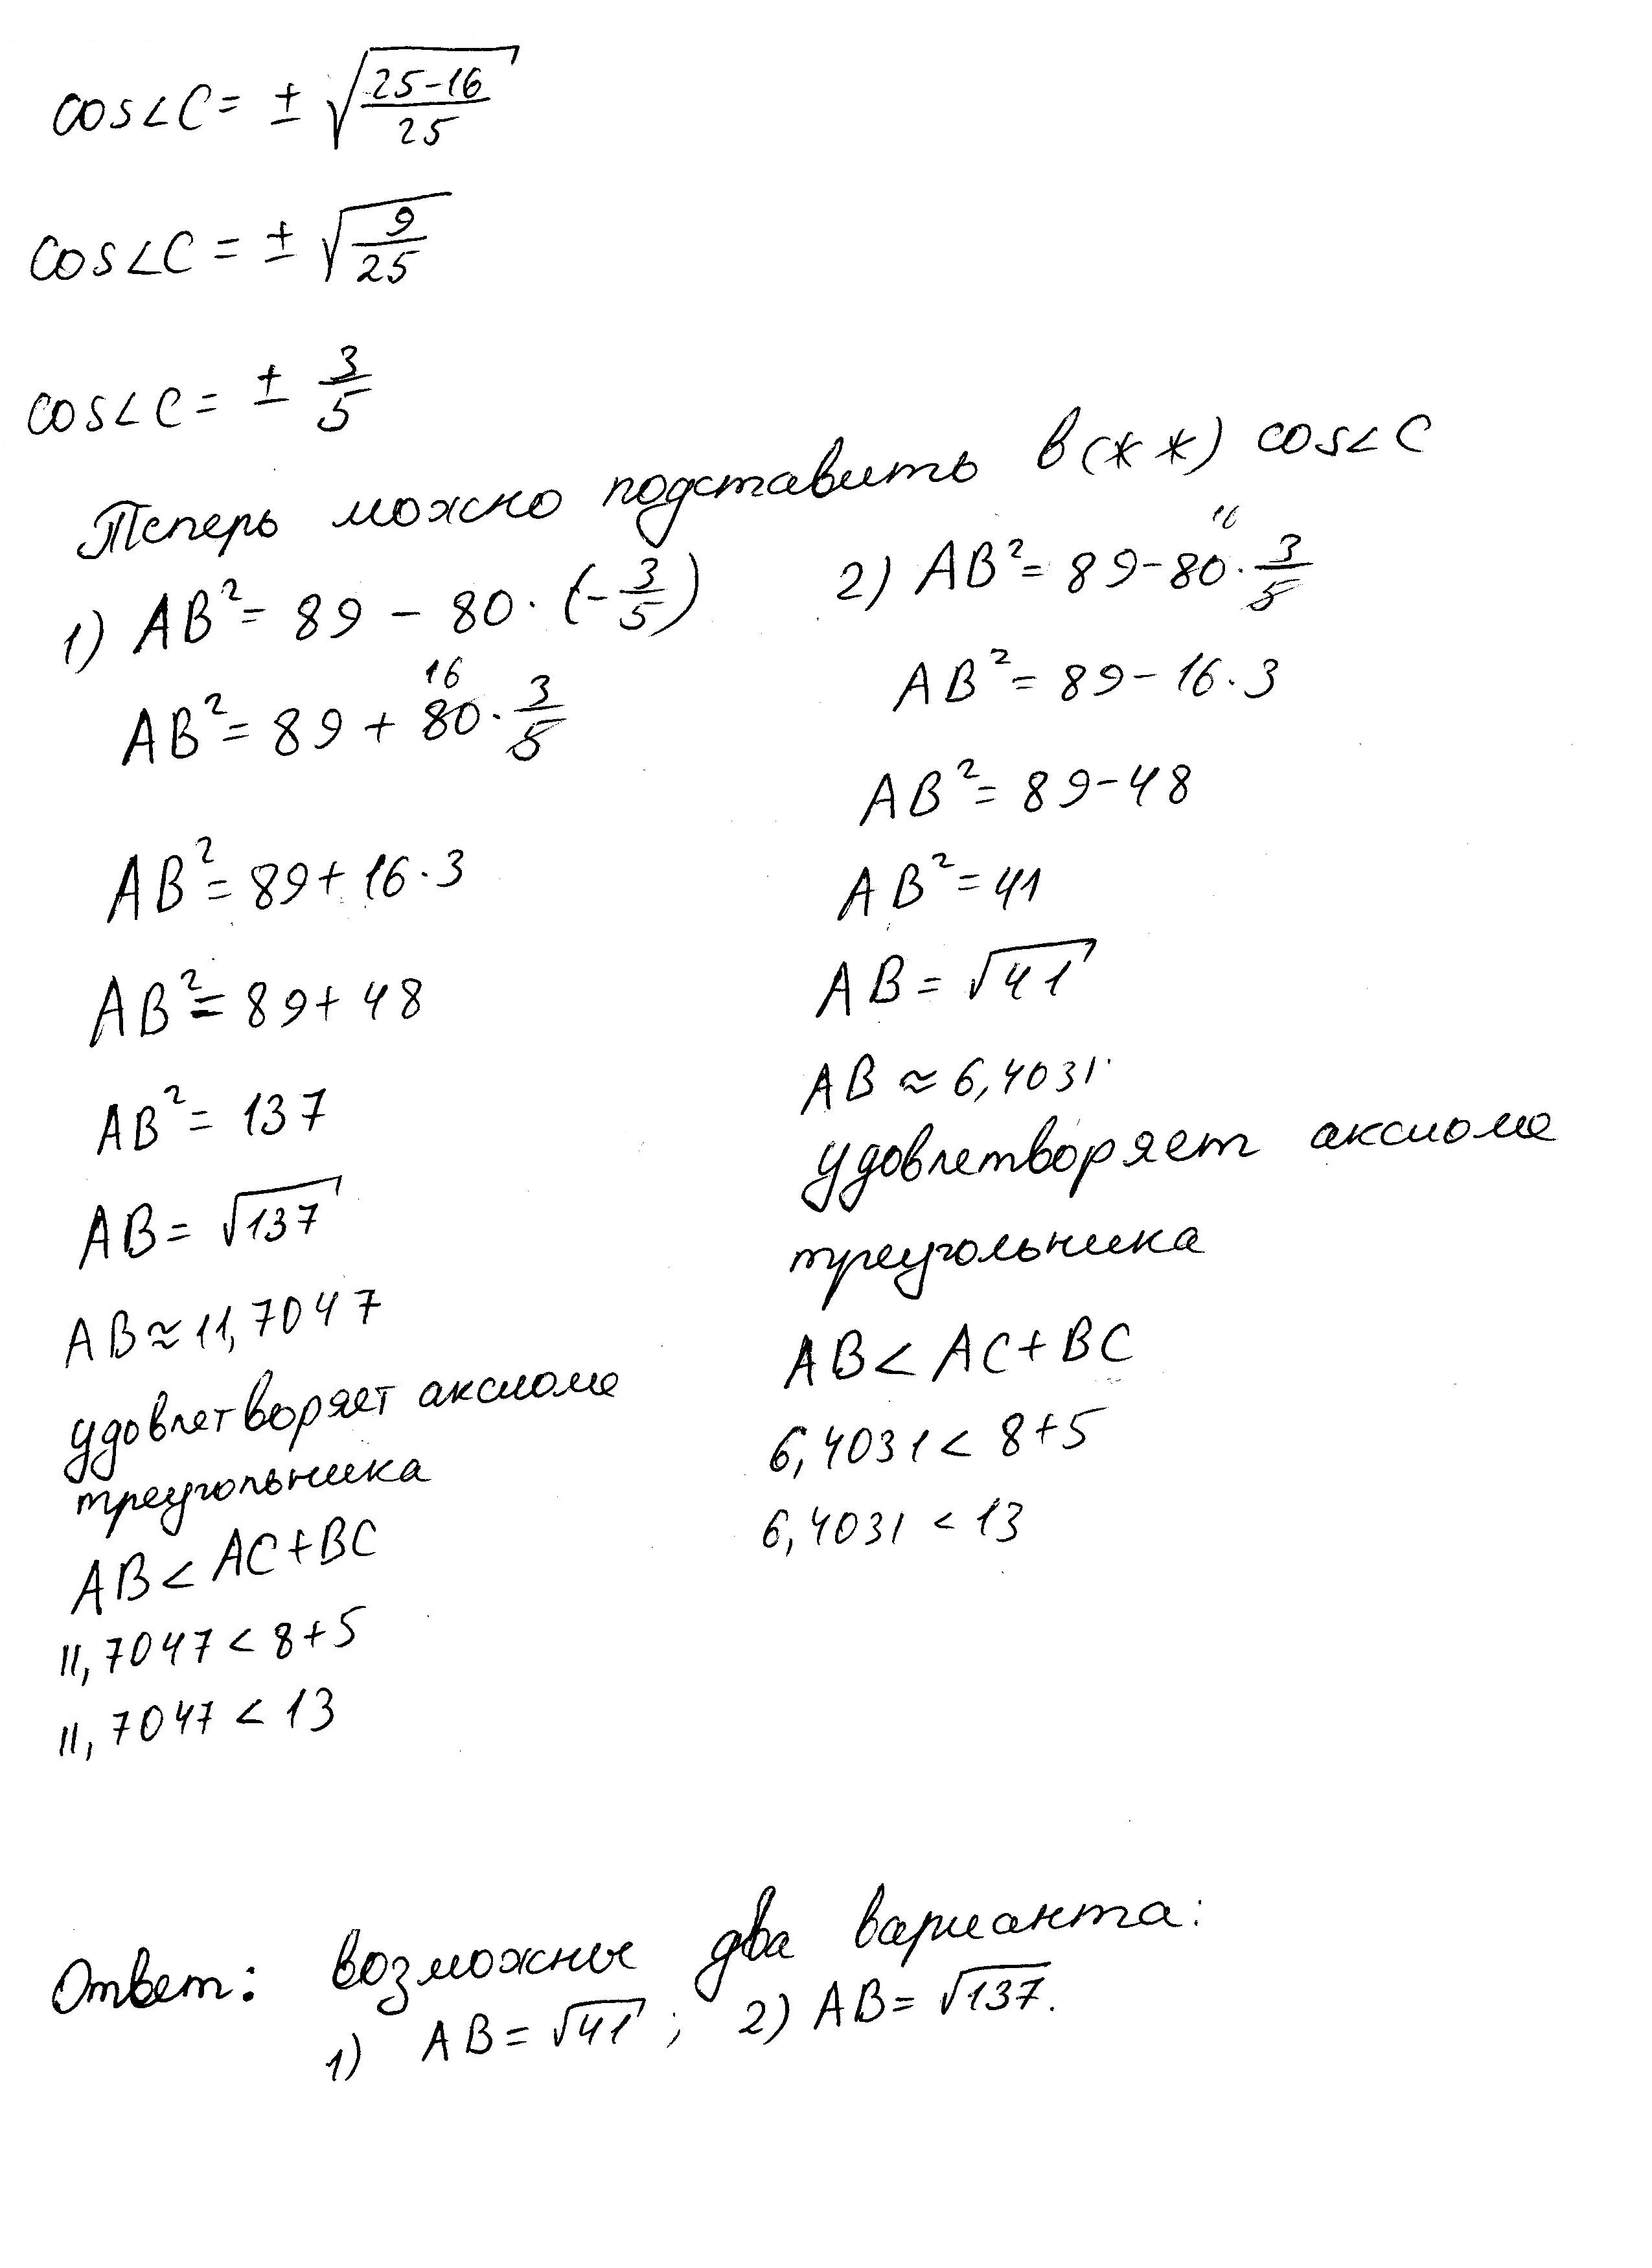 cos∠C = ± √((25-16)/25)
cos∠C = ± √(9/25)
cos∠C = ± 3/5
Теперь можно подставить в (**) cos∠C
1) AB² = 89 - 80 · (-3/5)
AB² = 89 + 80 · 3/5
16
AB² = 89 + 16 · 3
AB² = 89 + 48
AB² = 137
AB = √137
AB ≈ 11,7047
удовлетворяет аксиоме
треугольника
AB < AC + BC
11,7047 < 8 + 5
11,7047 < 13
2) AB² = 89 - 80 · 3/5
16
AB² = 89 - 16 · 3
AB² = 89 - 48
AB² = 41
AB = √41
AB ≈ 6,4031
удовлетворяет аксиоме
треугольника
AB < AC + BC
6,4031 < 8 + 5
6,4031 < 13
Ответ: возможны два варианта:
1) AB = √41 ; 2) AB = √137.